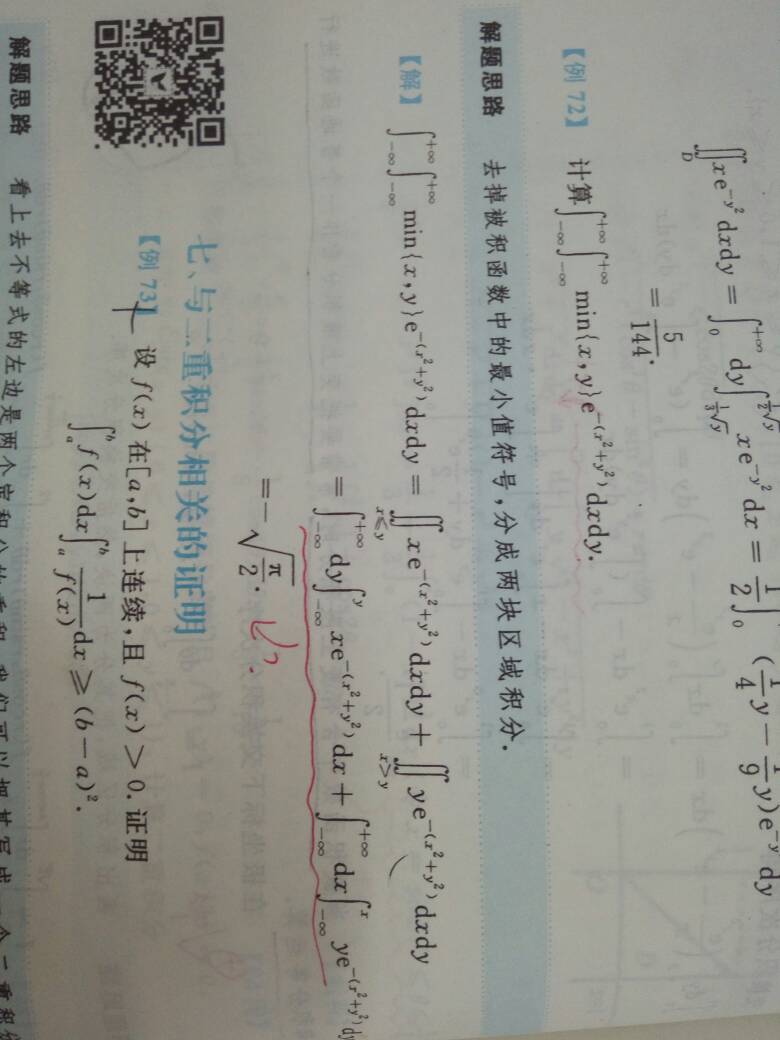 ∬_D xe^{-y²}dxdy = ∫_0^{+∞} dy∫_{\frac{1}{3}√y}^{\frac{1}{2}√y} xe^{-y²}dx = \frac{1}{2}∫_0 (\frac{1}{4}y - \frac{1}{9}y)e^{-y}dy
= \frac{5}{144}.
【例 72】 计算∫_{-∞}^{+∞}∫_{-∞}^{+∞} min{x,y}e^{-(x²+y²)}dxdy.
解题思路 去掉被积函数中的最小值符号,分成两块区域积分.
【解】 ∫_{-∞}^{+∞}∫_{-∞}^{+∞} min{x,y}e^{-(x²+y²)}dxdy = ∬_{x≤y} xe^{-(x²+y²)}dxdy + ∬_{x>y} ye^{-(x²+y²)}dxdy
= ∫_{-∞}^{+∞} dy∫_{-∞}^{y} xe^{-(x²+y²)}dx + ∫_{-∞}^{+∞} dx∫_{-∞}^{x} ye^{-(x²+y²)}dy
= -\sqrt{\frac{π}{2}}.
七、与二重积分相关的证明
【例 73】 设 f(x) 在[a,b]上连续,且 f(x) > 0. 证明
∫_a^b f(x)dx∫_a^b \frac{1}{f(x)}dx ≥ (b-a)².
解题思路 看上去不等式的左边是两个定积分的乘积,我们可以把其写成一个二重积分